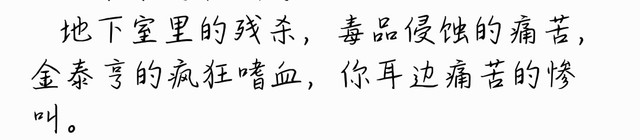 地下室里的残杀，毒品侵蚀的痛苦，
金泰亨的疯狂嗜血，你耳边痛苦的惨
叫。